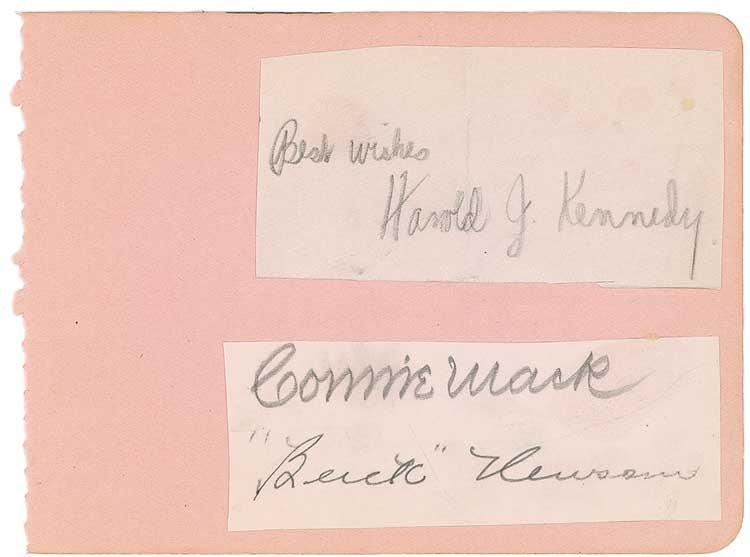 Best wishes
Harold J. Kennedy.
Connie Mack
"Buck" Newsom